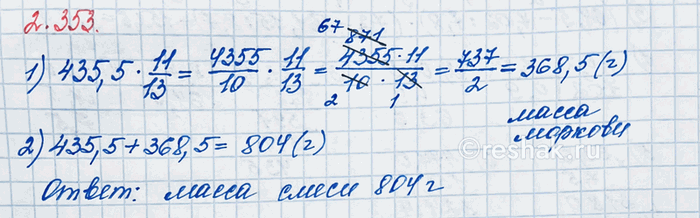 2.353.
1) 435,5 · 11/13 = 4355/10 · 11/13 = 67 871 4355 · 11 / 10 · 13 2 1 = 737/2 = 368,5 (г)
масса
моркови
2) 435,5 + 368,5 = 804 (г)
Ответ: масса смеси 804 г
©reshak.ru